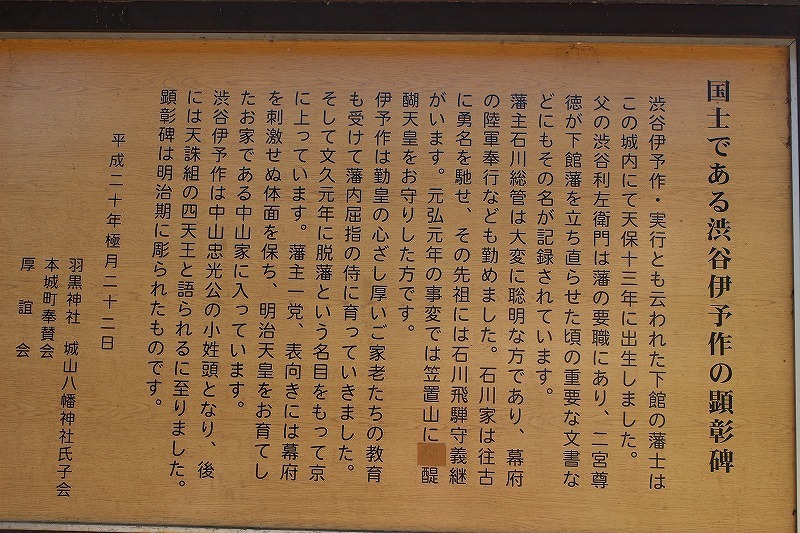 国士である渋谷伊予作の顕彰碑
渋谷伊予作・実行とも云われた下館の藩士は
この城内にて天保十三年に出生しました。
父の渋谷利左衛門は藩の要職にあり、二宮尊
徳が下館藩を立ち直らせた頃の重要な文書な
どにもその名が記録されています。
藩主石川総管は大変に聡明な方であり、幕府
の陸軍奉行なども勤めました。石川家は往古
に勇名を馳せ、その先祖には石川飛騨守義継
がいます。元弘元年の事変では笠置山に 醍
醐天皇をお守りした方です。
伊予作は勤皇の心ざし厚いご家老たちの教育
も受けて藩内屈指の侍に育っていきました。
そして文久元年に脱藩という名目をもって京
に上っています。藩主一党、表向きには幕府
を刺激せぬ体面を保ち、明治天皇をお育てし
たお家である中山家に入っています。
渋谷伊予作は中山忠光公の小姓頭となり、後
には天誅組の四天王と語られるに至りました。
顕彰碑は明治期に彫られたものです。
平成二十年極月二十二日
羽黒神社 城山八幡神社氏子会
本城町奉賛会
厚誼会